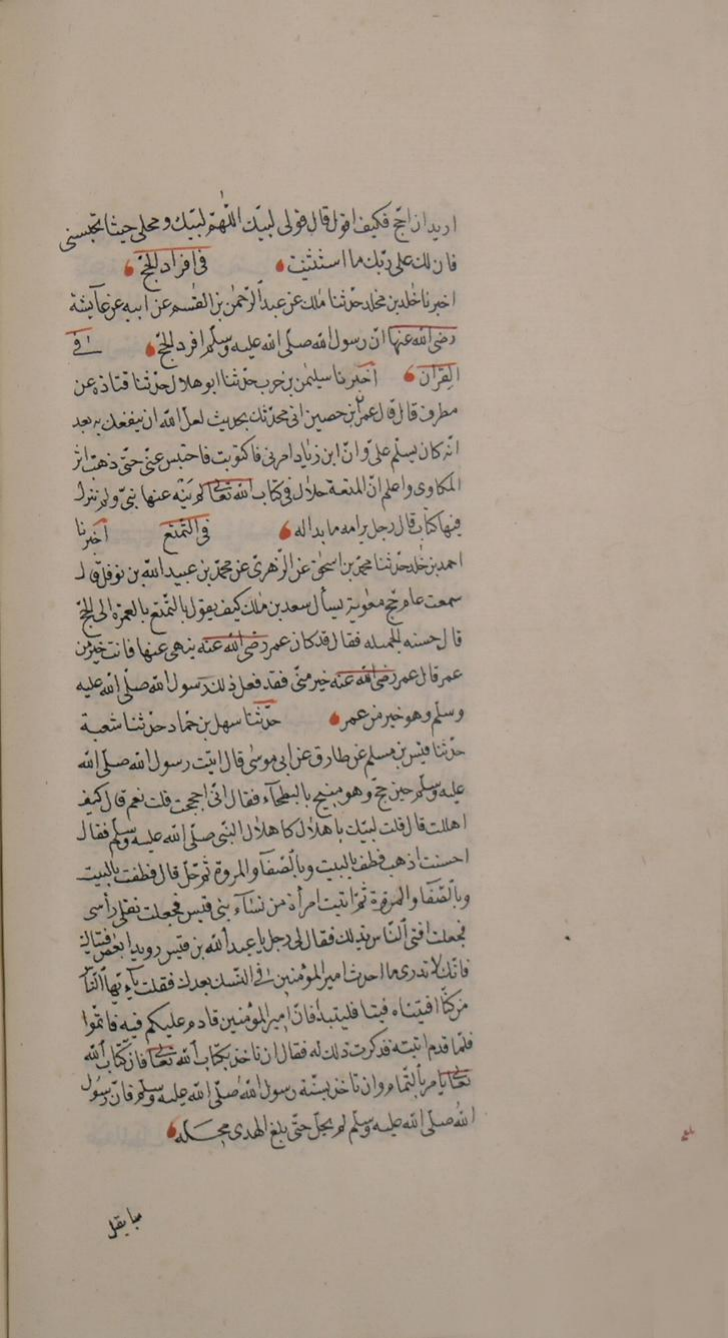 اريد ان احج فكيف اقول قال قولى لبيك اللهم لبيك ومحلى حيث تحبسنى
فان لك على ربك ما استثنيت فى افراد الحج
اخبرنا خالد بن مخلد حدثنا ملك عن عبد الرحمن بن القسم عن ابيه عن عآيشة
رضى الله عنها ان رسول الله صلى الله عليه وسلم افرد الحج فى
القران اخبرنا سليمن بن حرب حدثنا ابو هلال حدثنا قتادة عن
مطرف قال قال عمران بن حصين انى محدثك بحديث لعل الله ان ينفعك به بعد
انه كان يسلم على وان ابن زياد امرنى فاكتويت فاحتبس عنى حتى ذهب اثر
المكاوى واعلم ان المتعة حلال فى كتاب الله تعالى لم ينه عنها نبى ولم ينزل
فيها كتاب قال رجل برايه ما بدا له فى التمتع اخبرنا
احمد بن خلد حدثنا محمد بن اسحق عن الزهرى عن محمد بن عبيد الله بن نوفل قال
سمعت عام حج معوية يسأل سعد بن ملك كيف يقول بالتمتع بالعمرة الى الحج
قال حسنه جميله فقال قد كان عمر رضى الله عنه ينهى عنها فانت خير من
عمر قال عمر رضى الله عنه خير منى فقد فعل ذلك رسول الله صلى الله عليه
وسلم وهو خير من عمر حدثنا سهل بن حماد حدثنا شعبة
حدثنا قيس بن مسلم عن طارق عن ابى موسى قال اتيت رسول الله صلى الله
عليه وسلم حين حج وهو منيح بالبطحآء فقال انى احججت قلت نعم قال كيف
اهللت قال قلت لبيك باهلال كاهلال النبى صلى الله عليه وسلم فقال
احسنت اذهب فطف بالبيت وبالصفا والمروة ثم حل قال فطفت بالبيت
وبالصفا والمروة ثم اتيت امرأة من نسآء بنى قيس فجعلت تفلى رأسى
فجعلت افتى الناس بذلك فقال لى رجل يا عبد الله بن قيس رويدا بعض فتياك
فانك لا تدرى ما احدث امير المؤمنين فى النسك بعدك فقلت يآءيها الناس
من كنا افتيناه فتيا فليتبد فان امير المؤمنين قادم عليكم فيه فاتموا
فلما قدم اتيته فذكرت ذلك له فقال ان ناخذ بكتاب الله تعالى فان كتاب الله
تعالى يامر بالتمام وان ناخذ بسنة رسول الله صلى الله عليه وسلم فان رسول
الله صلى الله عليه وسلم لم يحل حتى بلغ الهدى محله